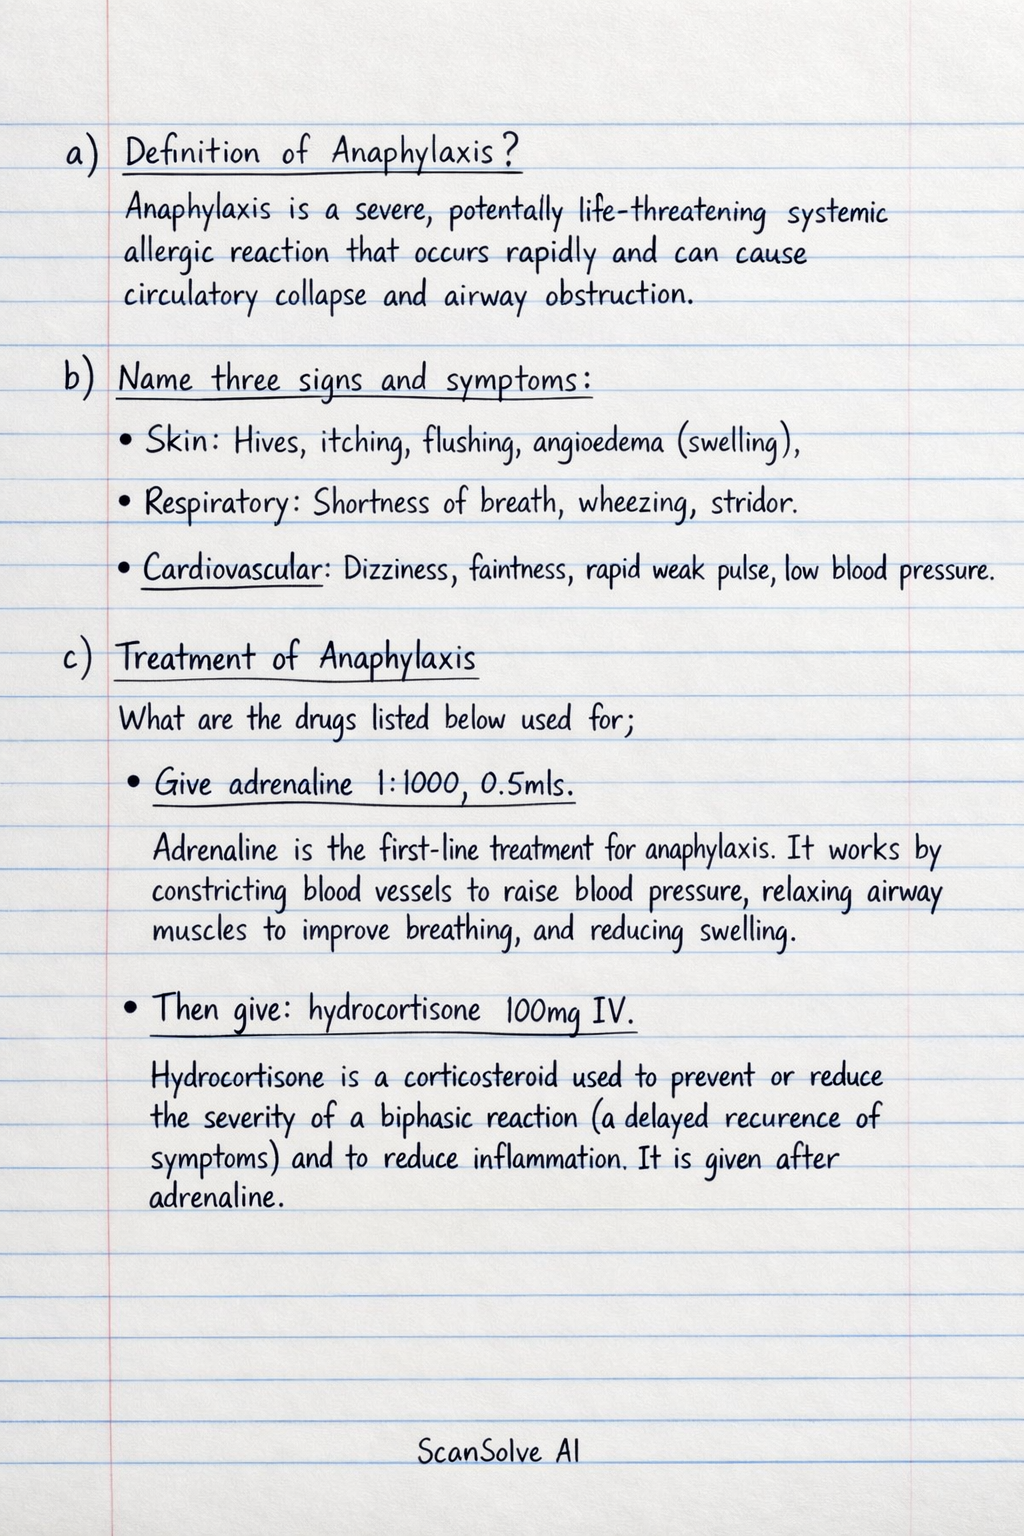 a) Definition of Anaphylaxis?
Anaphylaxis is a severe, potentially life-threatening systemic
allergic reaction that occurs rapidly and can cause
circulatory collapse and airway obstruction.
b) Name three signs and symptoms:
• Skin: Hives, itching, flushing, angioedema (swelling),
• Respiratory: Shortness of breath, wheezing, stridor.
• Cardiovascular: Dizziness, faintness, rapid weak pulse, low blood pressure.
c) Treatment of Anaphylaxis
What are the drugs listed below used for;
• Give adrenaline 1:1000, 0.5mls.
Adrenaline is the first-line treatment for anaphylaxis. It works by
constricting blood vessels to raise blood pressure, relaxing airway
muscles to improve breathing, and reducing swelling.
• Then give: hydrocortisone 100mg IV.
Hydrocortisone is a corticosteroid used to prevent or reduce
the severity of a biphasic reaction (a delayed recurence of
symptoms) and to reduce inflammation. It is given after
adrenaline.
ScanSolve AI